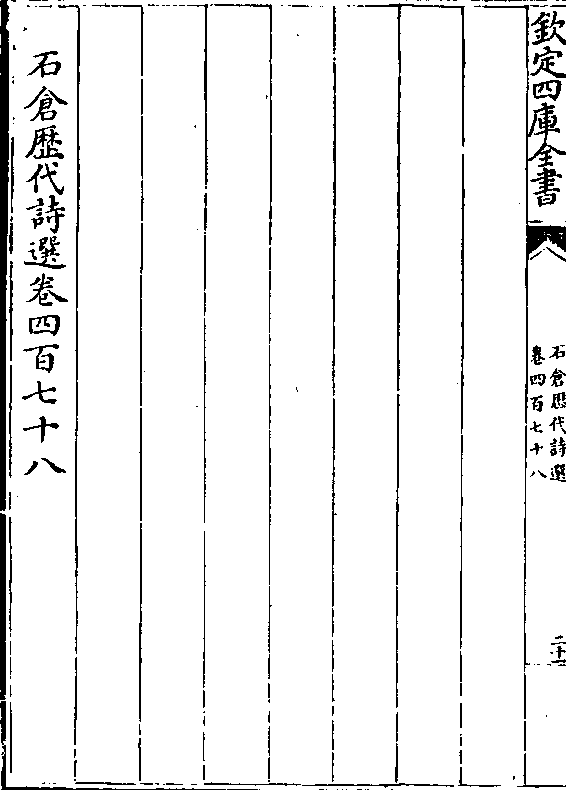 欽定四庫全書
石倉歴代詩選
卷四百七十八
二十一
石倉歴代詩選卷四百七十八